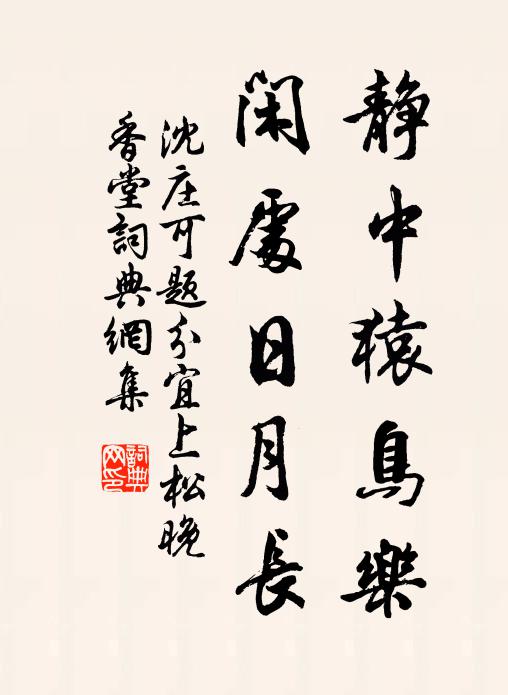 静中猿鳥樂
閑處日月長
沈庄可題分宜上松晚
香堂詞典網集
詞典網印